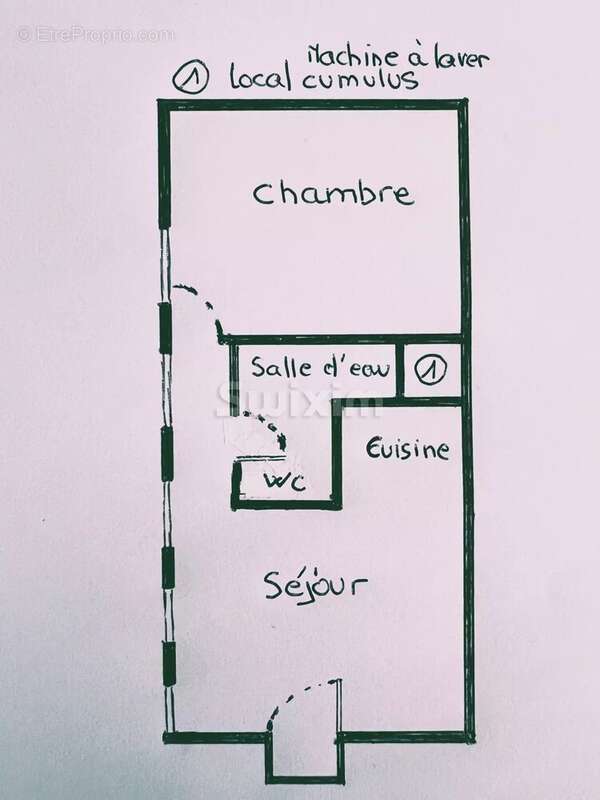 © EtreProprio.com
Machine à laver
① local cumulus
chambre
Salle d'eau ①
Swixim
Cuisine
WC
Séjour